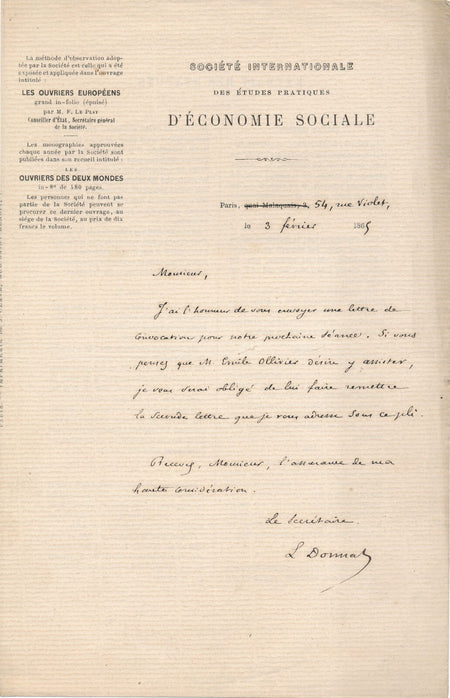 La méthode d'observation adop-
tée par la Société est celle qui a été
exposée et appliquée dans l'ouvrage
intitulé :
LES OUVRIERS EUROPÉENS
grand in-folio (épuisé)
par M. F. LE PLAY
Conseiller d'État, Secrétaire général
de la Société.
Les monographies approuvées
chaque année par la Société sont
publiées dans son recueil intitulé :
LES
OUVRIERS DES DEUX MONDES
in-8° de 480 pages.
Les personnes qui ne font pas
partie de la Société peuvent se
procurer ce dernier ouvrage, au
siége de la Société, au prix de dix
francs le volume.
SOCIÉTÉ INTERNATIONALE
DES ÉTUDES PRATIQUES
D'ÉCONOMIE SOCIALE
Paris, quai Malaquais, 3, 54, rue Violet,
le 3 février 1865
Monsieur,
J'ai l'honneur de vous envoyer une lettre de
convocation pour notre prochaine séance. Si vous
pensez que M. Emile Ollivier désire y assister,
je vous serai obligé de lui faire remettre
la seconde lettre que je vous adresse sous ce pli.
Recevez, Monsieur, l'assurance de ma
haute considération.
Le Secrétaire.
L Donnat